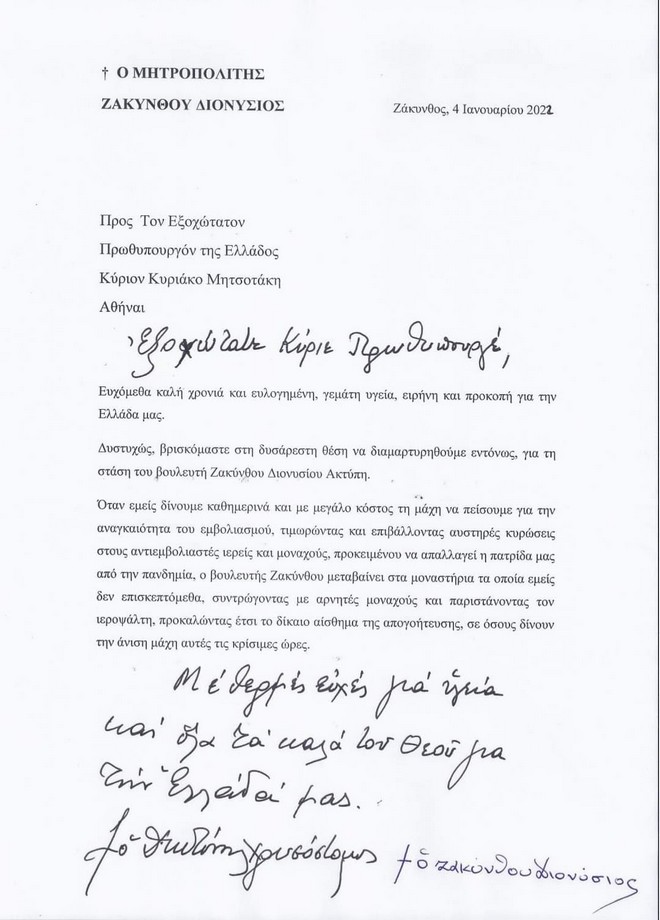 † Ο ΜΗΤΡΟΠΟΛΙΤΗΣ
ΖΑΚΥΝΘΟΥ ΔΙΟΝΥΣΙΟΣ
Ζάκυνθος, 4 Ιανουαρίου 2022
Προς Τον Εξοχώτατον
Πρωθυπουργόν της Ελλάδος
Κύριον Κυριάκο Μητσοτάκη
Αθήναι
Ἐξοχώτατε Κύριε Πρωθυπουργέ,
Ευχόμεθα καλή χρονιά και ευλογημένη, γεμάτη υγεία, ειρήνη και προκοπή για την
Ελλάδα μας.
Δυστυχώς, βρισκόμαστε στη δυσάρεστη θέση να διαμαρτυρηθούμε εντόνως, για τη
στάση του βουλευτή Ζακύνθου Διονυσίου Ακτύπη.
Όταν εμείς δίνουμε καθημερινά και με μεγάλο κόστος τη μάχη να πείσουμε για την
αναγκαιότητα του εμβολιασμού, τιμωρώντας και επιβάλλοντας αυστηρές κυρώσεις
στους αντιεμβολιαστές ιερείς και μοναχούς, προκειμένου να απαλλαγεί η πατρίδα μας
από την πανδημία, ο βουλευτής Ζακύνθου μεταβαίνει στα μοναστήρια τα οποία εμείς
δεν επισκεπτόμεθα, συντρώγοντας με αρνητές μοναχούς και παριστάνοντας τον
ιεροψάλτη, προκαλώντας έτσι το δίκαιο αίσθημα της απογοήτευσης, σε όσους δίνουν
την άνιση μάχη αυτές τις κρίσιμες ώρες.
Μέ θερμές εὐχές γιά ὑγεία
καί ὅλα τά καλά τοῦ Θεοῦ για
τήν Ἑλλάδα μας.
† ὁ Δωδώνης Χρυσόστομος
† ὁ Ζακύνθου Διονύσιος